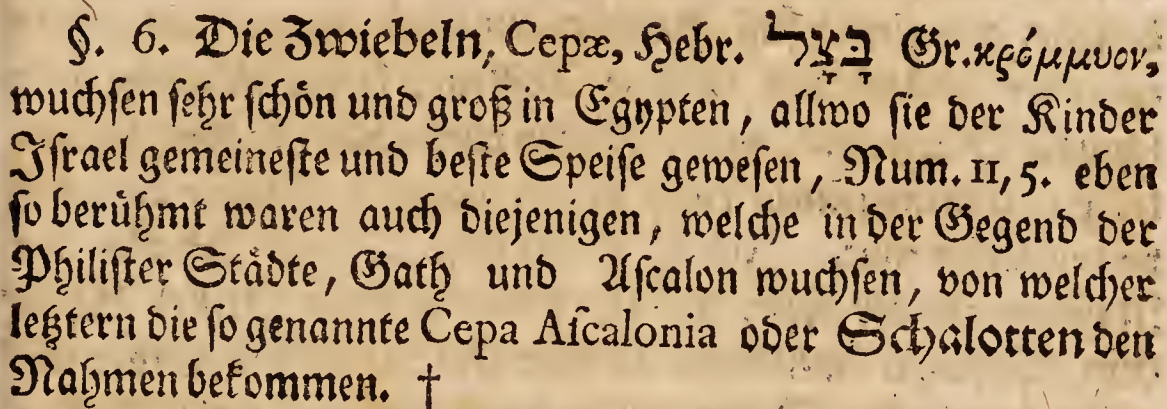 §. 6. Die Zwiebeln, Cepæ, Hebr. בָּצָל Gr. κρόμμυον,
wuchsen sehr schön und groß in Egypten, allwo sie der Kinder
Israel gemeineste und beste Speise gewesen, Num. 11, 5. eben
so berühmt waren auch diejenigen, welche in der Gegend der
Philister Städte, Gath und Ascalon wuchsen, von welcher
letztern die so genannte Cepa Ascalonia oder Schalotten den
Nahmen bekommen. †